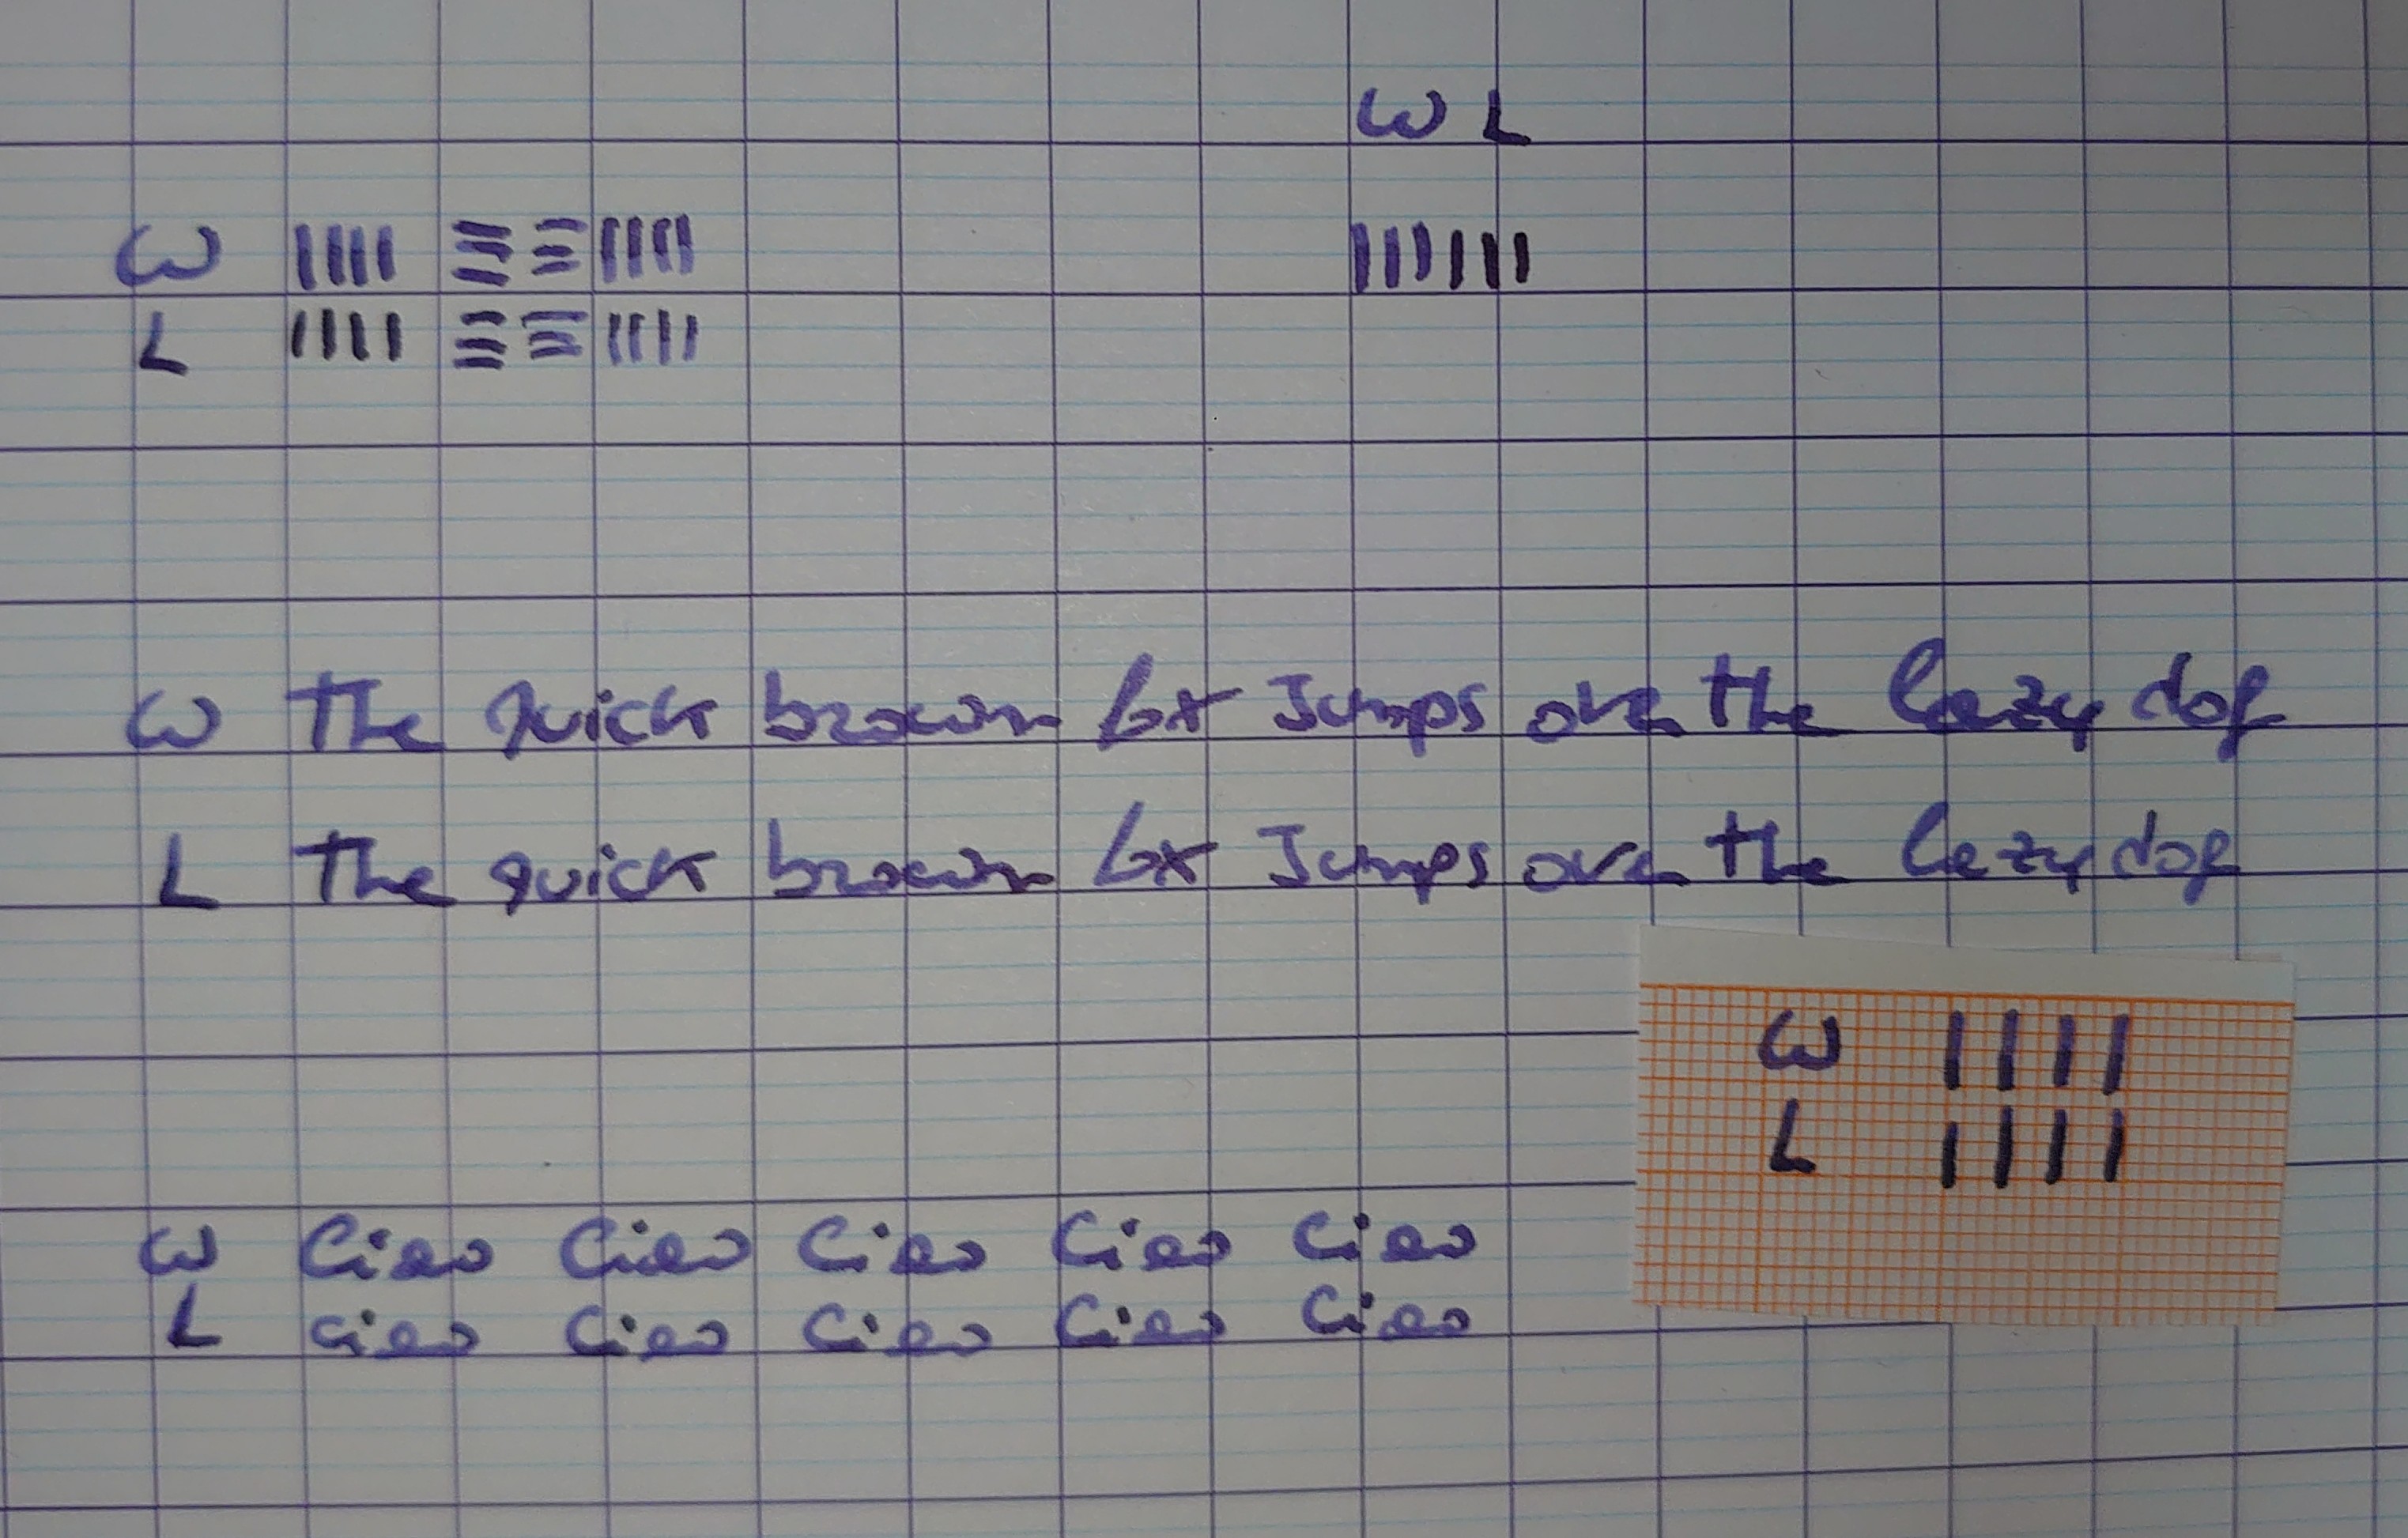 W L
W
L
W The quick brown fox Jumps over the lazy dog
L The quick brown fox Jumps over the lazy dog
W
L
W Ciao Ciao Ciao Ciao Ciao
L Ciao Ciao Ciao Ciao Ciao